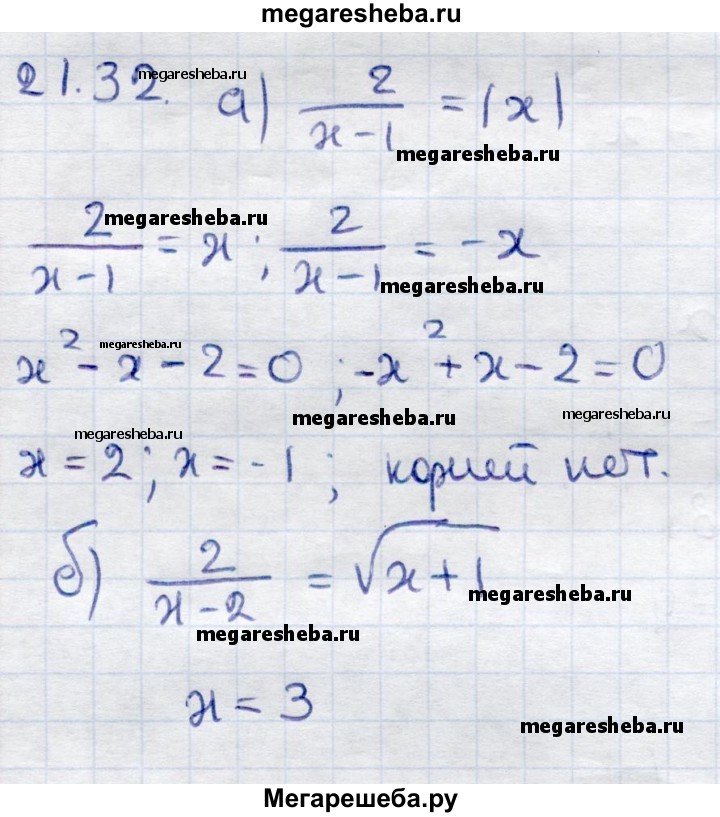 megaresheba.ru
21.32. a) 2/(x-1) = |x|
megaresheba.ru
megaresheba.ru
2/(x-1) = x ; 2/(x-1) = -x
megaresheba.ru
megaresheba.ru
x² - x - 2 = 0 ; -x² + x - 2 = 0
megaresheba.ru
megaresheba.ru
megaresheba.ru
megaresheba.ru
x = 2 ; x = -1 ; корней нет.
б) 2/(x-2) = √(x+1)
megaresheba.ru
megaresheba.ru
x = 3
megaresheba.ru
Мегарешеба.ру